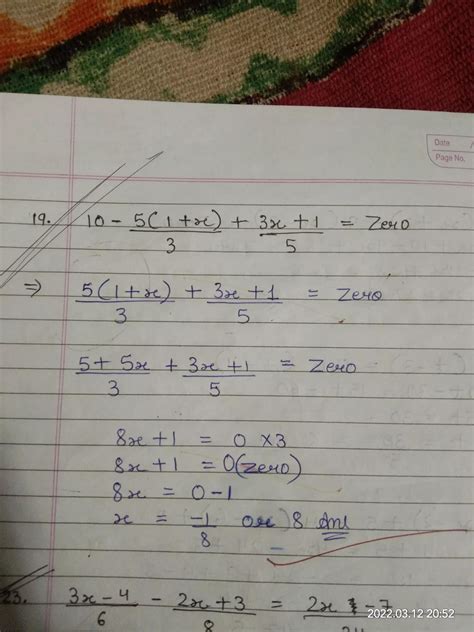 Date
Page No.
19. 10 - 5(1+x)/3 + 3x+1/5 = Zero
⇒ 5(1+x)/3 + 3x+1/5 = Zero
5+5x/3 + 3x+1/5 = Zero
8x+1 = 0 ×3
8x+1 = 0(zero)
8x = 0-1
x = -1/8 or) 8 Ans
23. 3x-4/6 - 2x+3/8 = 2x -7
2022.03.12 20:52